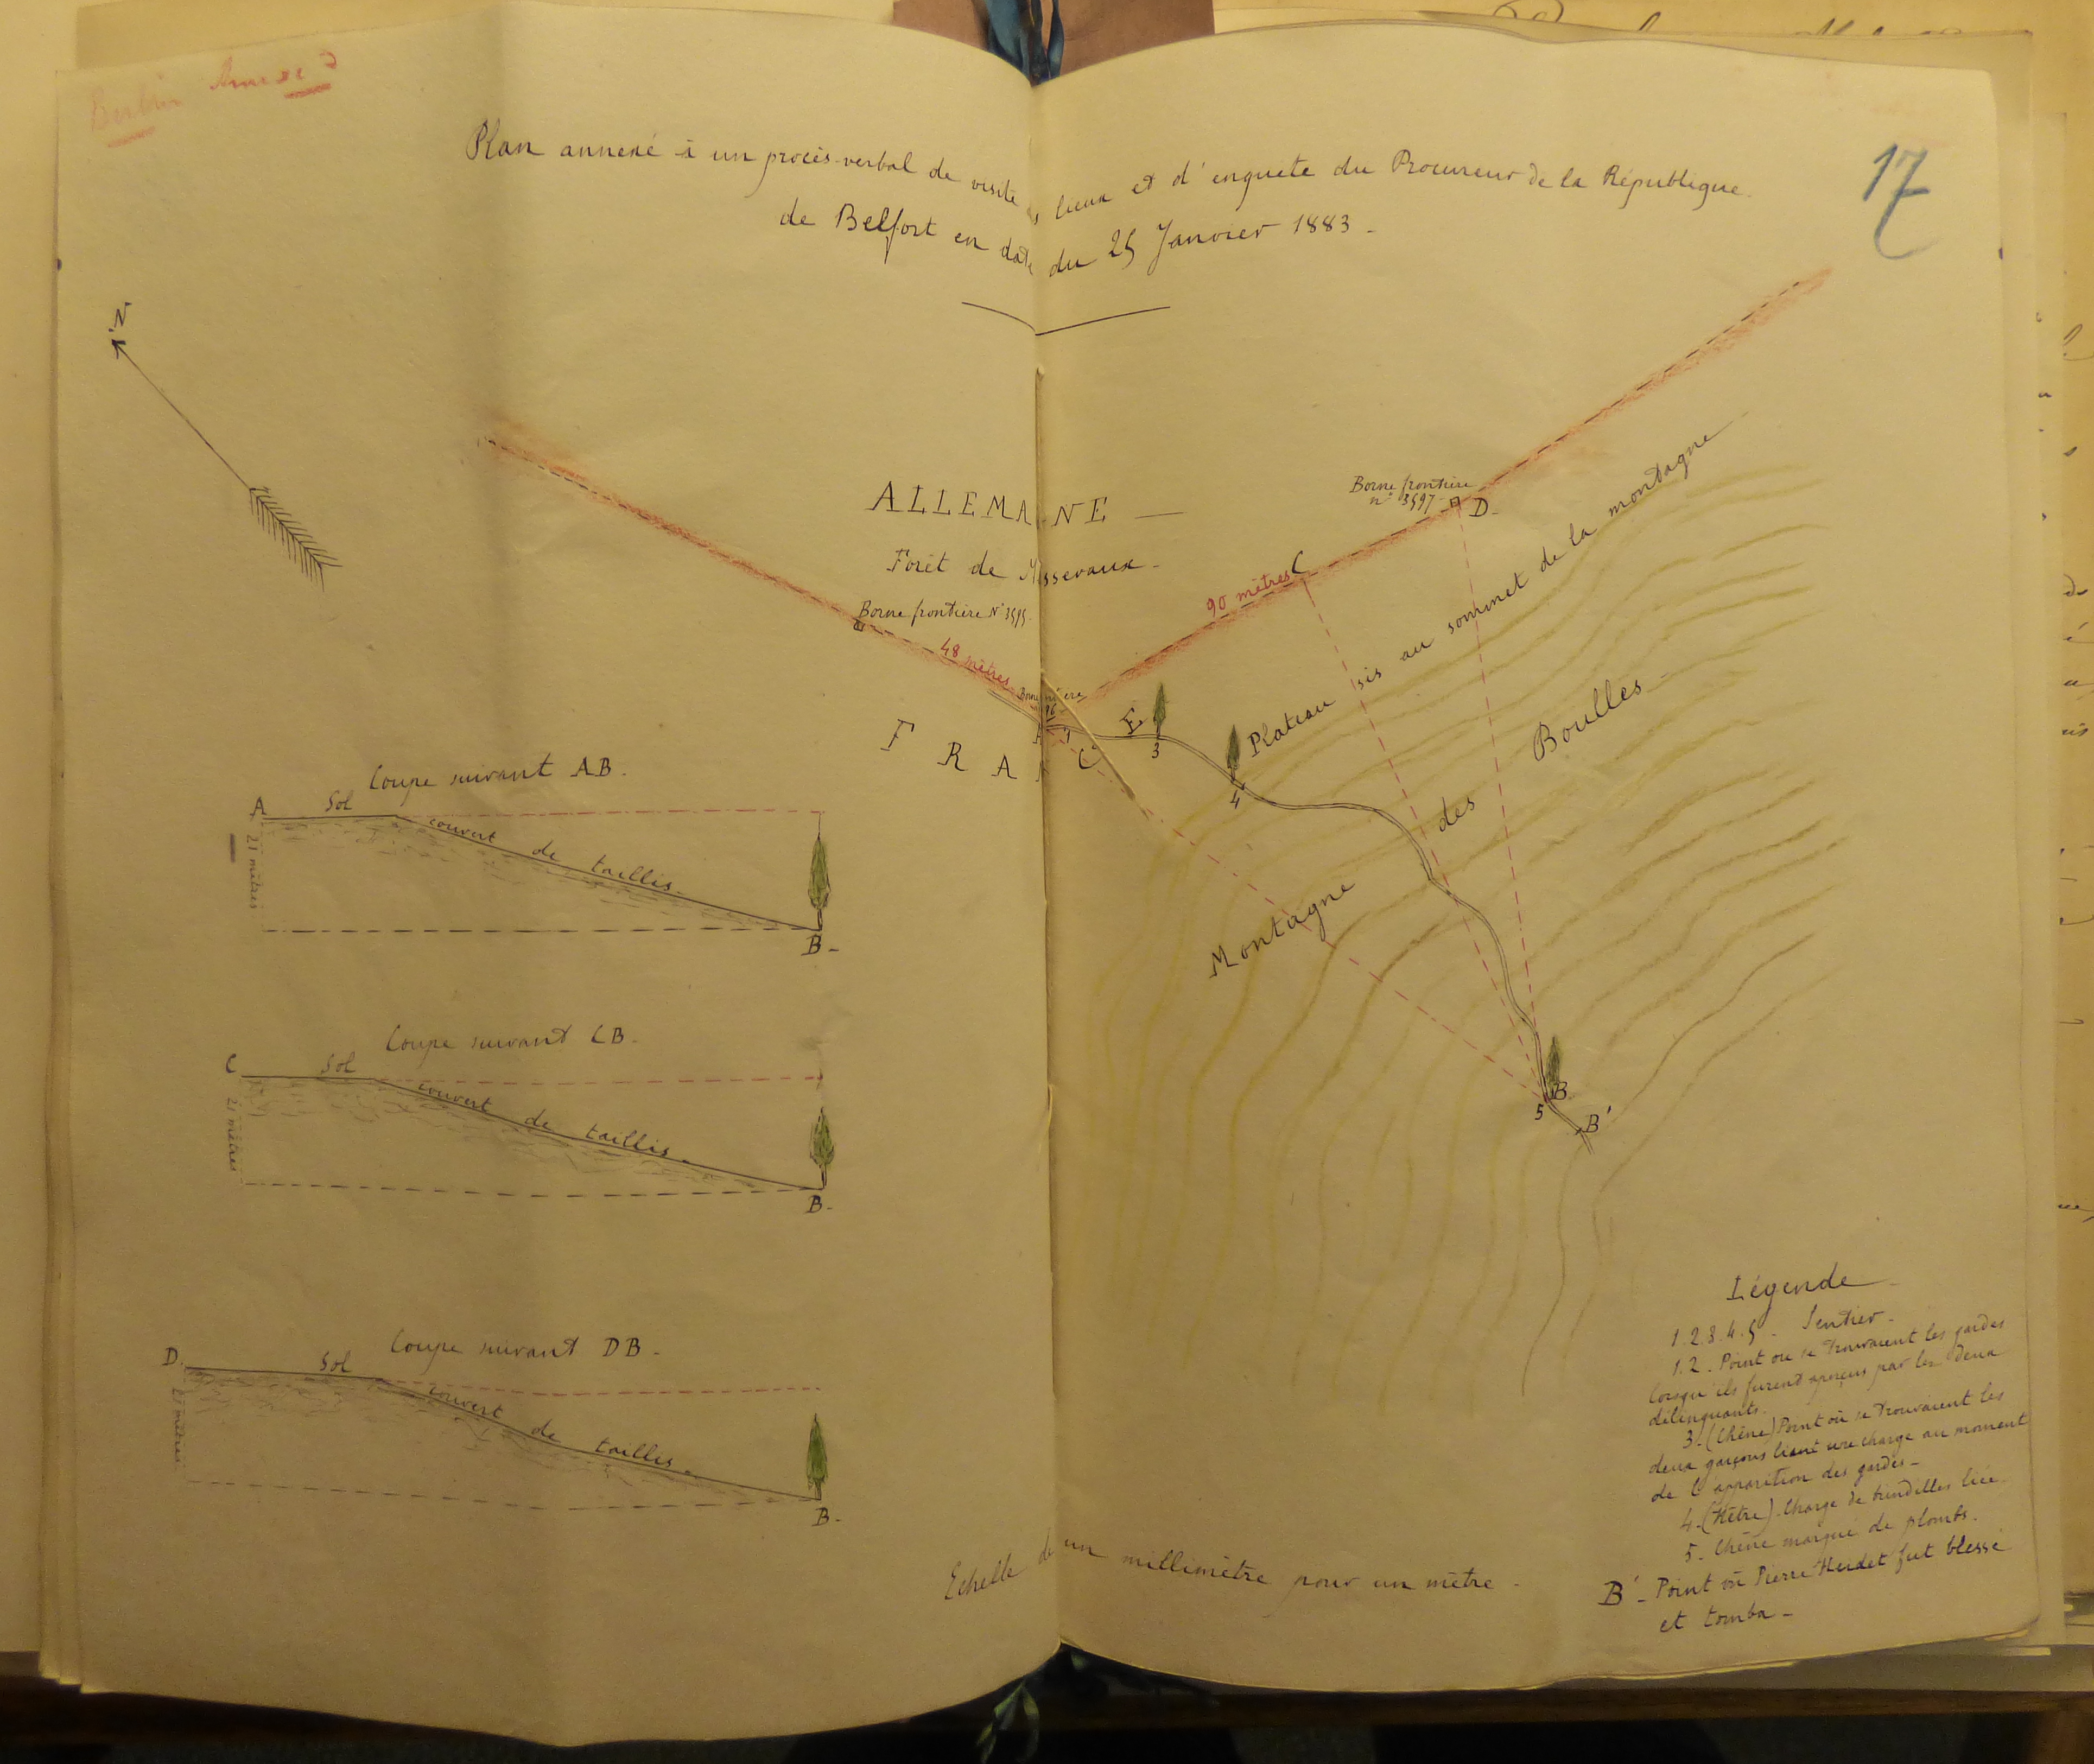 Annexe
17
Plan annexé à un procès-verbal de visite lieux et d'enquete du Procureur de la République
de Belfort en date du 25 Janvier 1883.
N
ALLEMANE
Forêt de
Borne frontière N° 3595
48 mètres
Borne frontière
n° 3597
D.
C
90 mètres
FRA C E
1
3
4
Plateau sis au sommet de la montagne
Montagne des Boulles
B
5
B'
Coupe suivant AB.
A Sol couvert de taillis.
21 mètres
B.
Coupe suivant CB.
C Sol couvert de taillis.
21 mètres
B.
Coupe suivant DB.
D. Sol couvert de taillis.
21 mètres
B.
Echelle de un millimètre pour un mètre.
Légende
1.2.3.4.5. Sentier.
1.2. Point ou se trouvaient les gardes
lorsqu'ils furent aperçus par les deux
délinquants.
3. (Chêne) Point où se trouvaient les
deux garçons liant une charge au moment
de l'apparition des gardes.
4. (Hêtre). Charge de liée.
5. Chêne marqué de plombs.
B'. Point où Pierre fut blessé
et tomba.